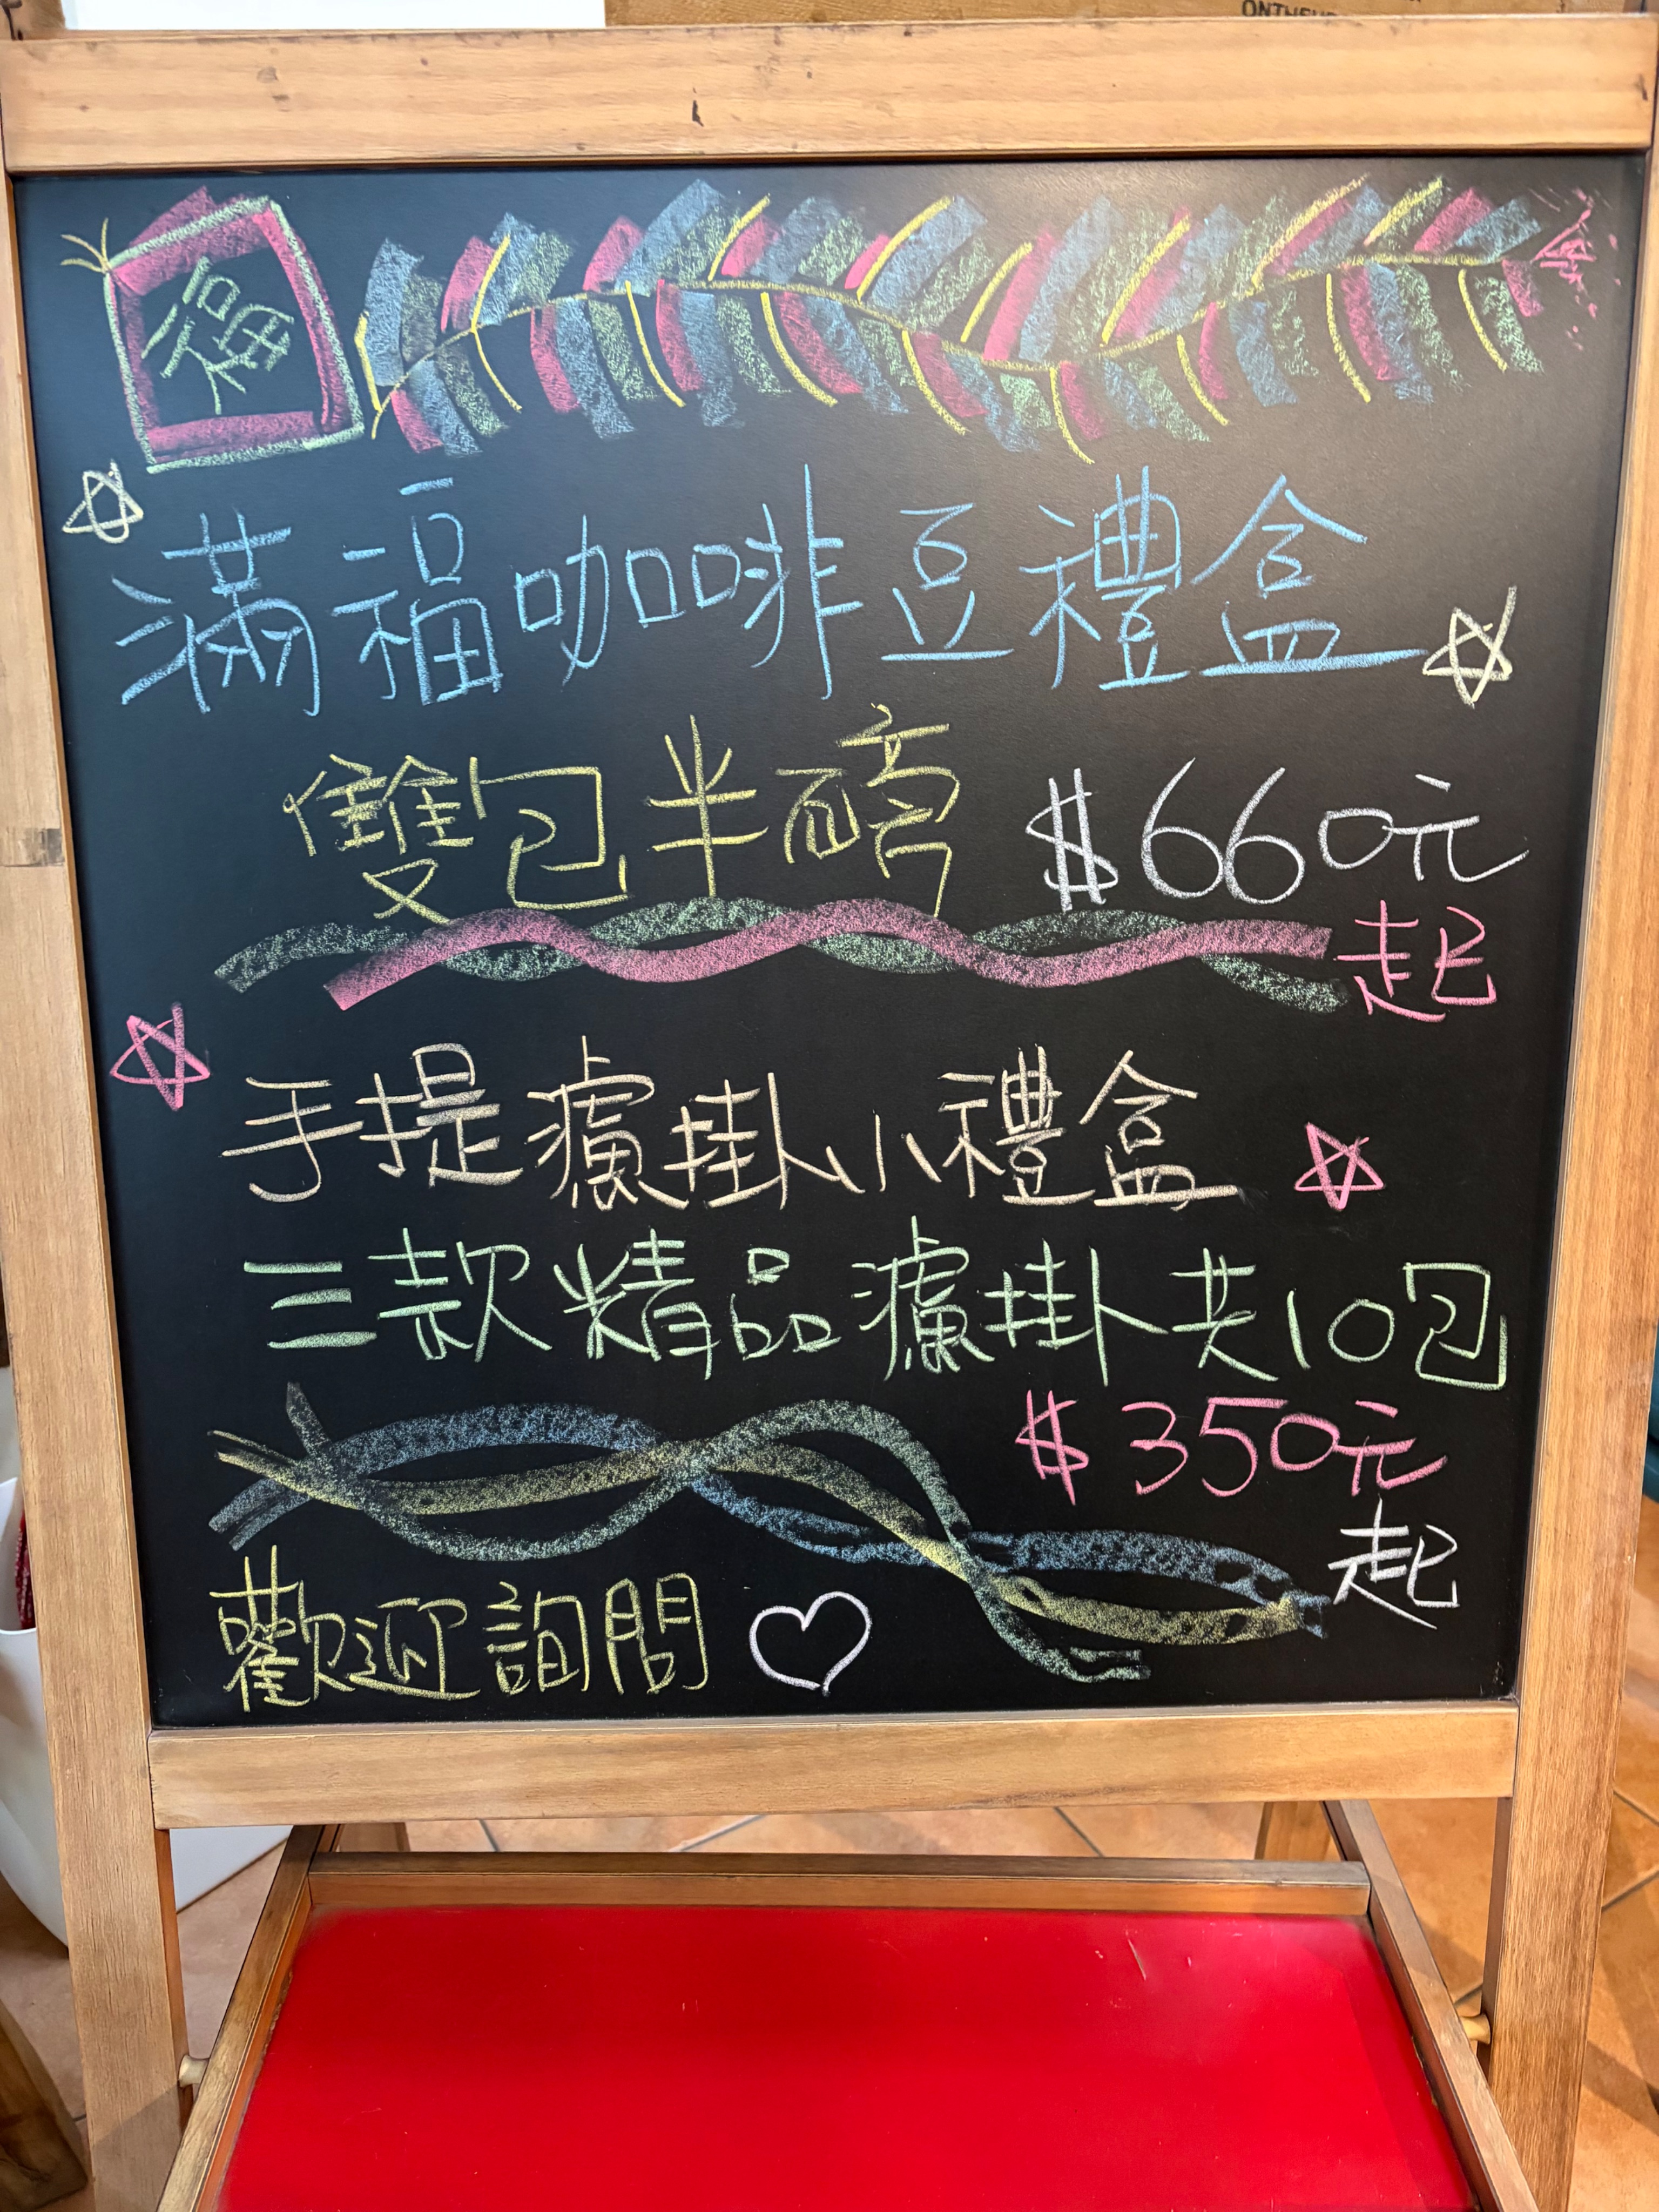 福
滿福咖啡豆禮盒
雙包半磅 $660元
起
手提濾掛小禮盒
三款精品濾掛共10包
$350元
起
歡迎詢問